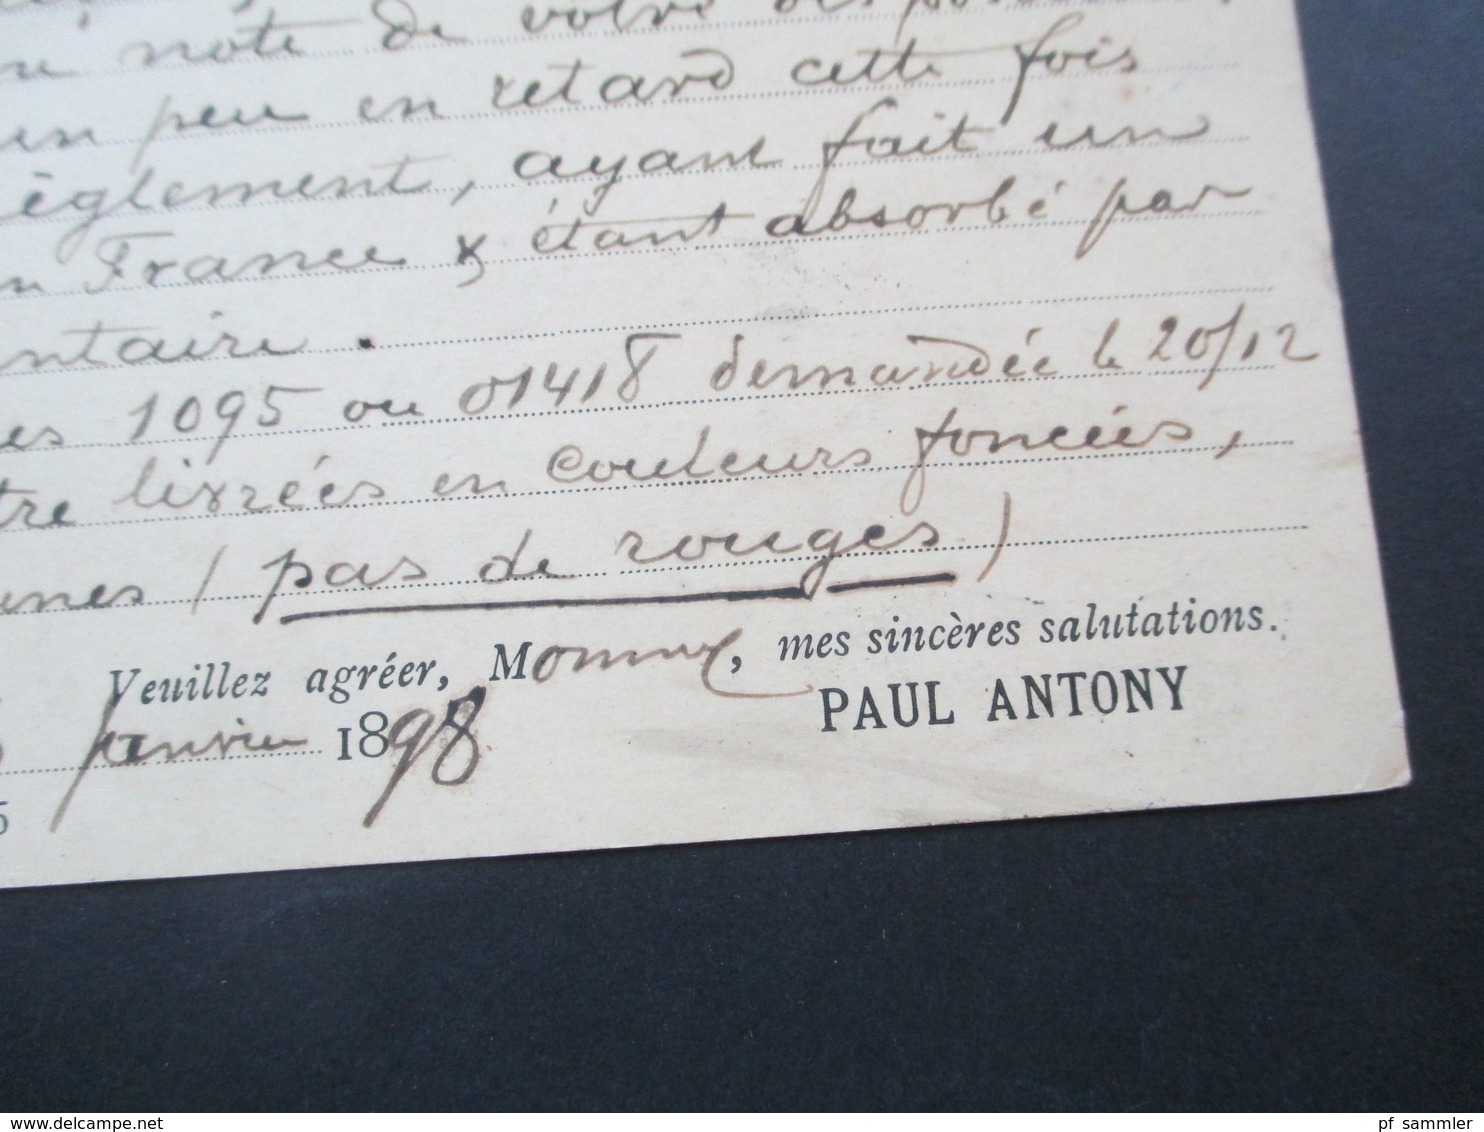 note de votre
un peu en retard cette fois
èglement, ayant fait un
n France & étant absorbé par
ntaire.
es 1095 ou 01418 demandée le 20/12
tre livrées en couleurs foncées,
unes (pas de rouges)
Veuillez agréer, Monsieur, mes sincères salutations.
janvier 1898 PAUL ANTONY
5
pf_sammler